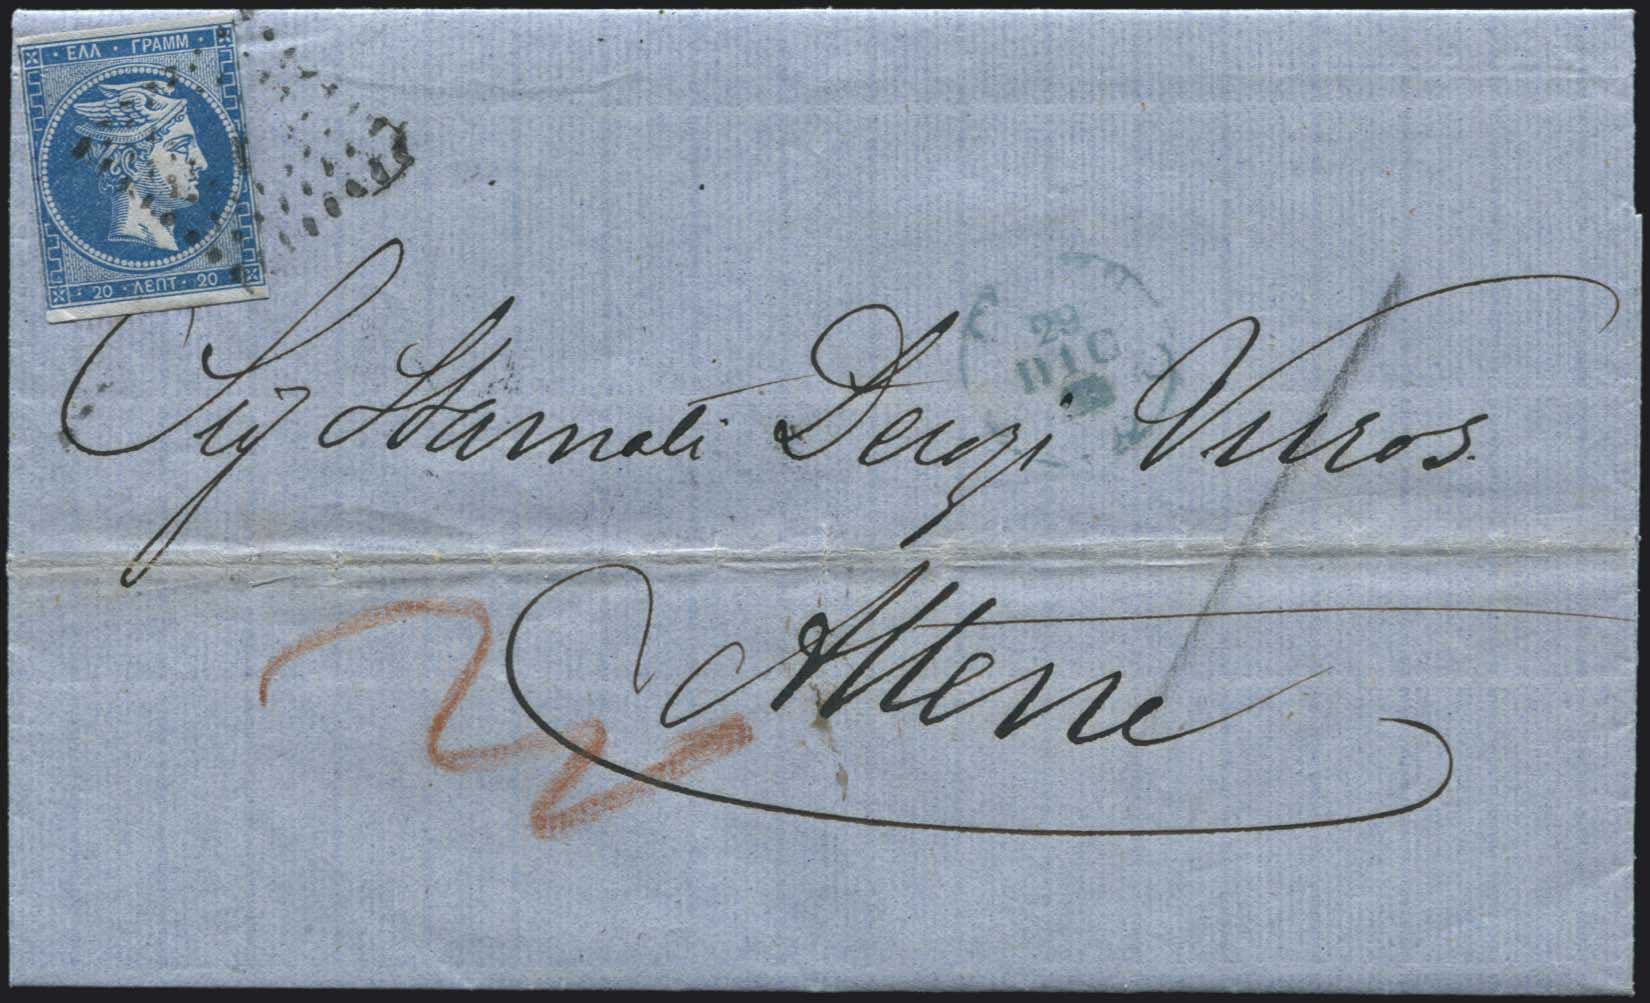 ΕΛΛ · ΓΡΑΜΜ
20 · ΛΕΠΤ · 20
29
DIC
Sig Stamati Decozi Vuros.
Attene